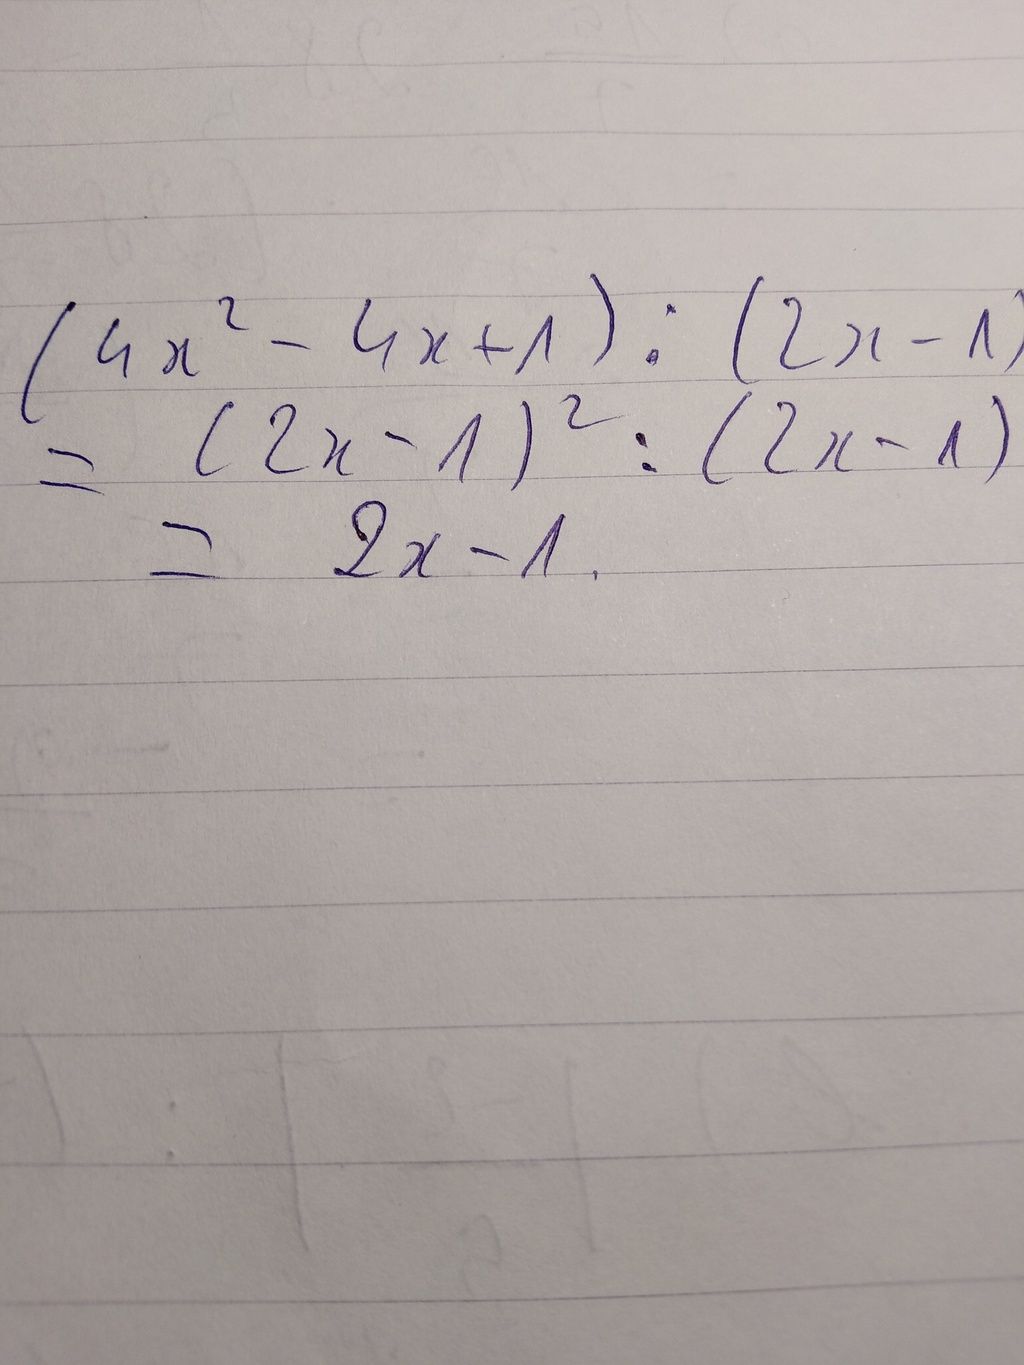 (4x² - 4x + 1) : (2x - 1)
= (2x - 1)² : (2x - 1)
= 2x - 1.